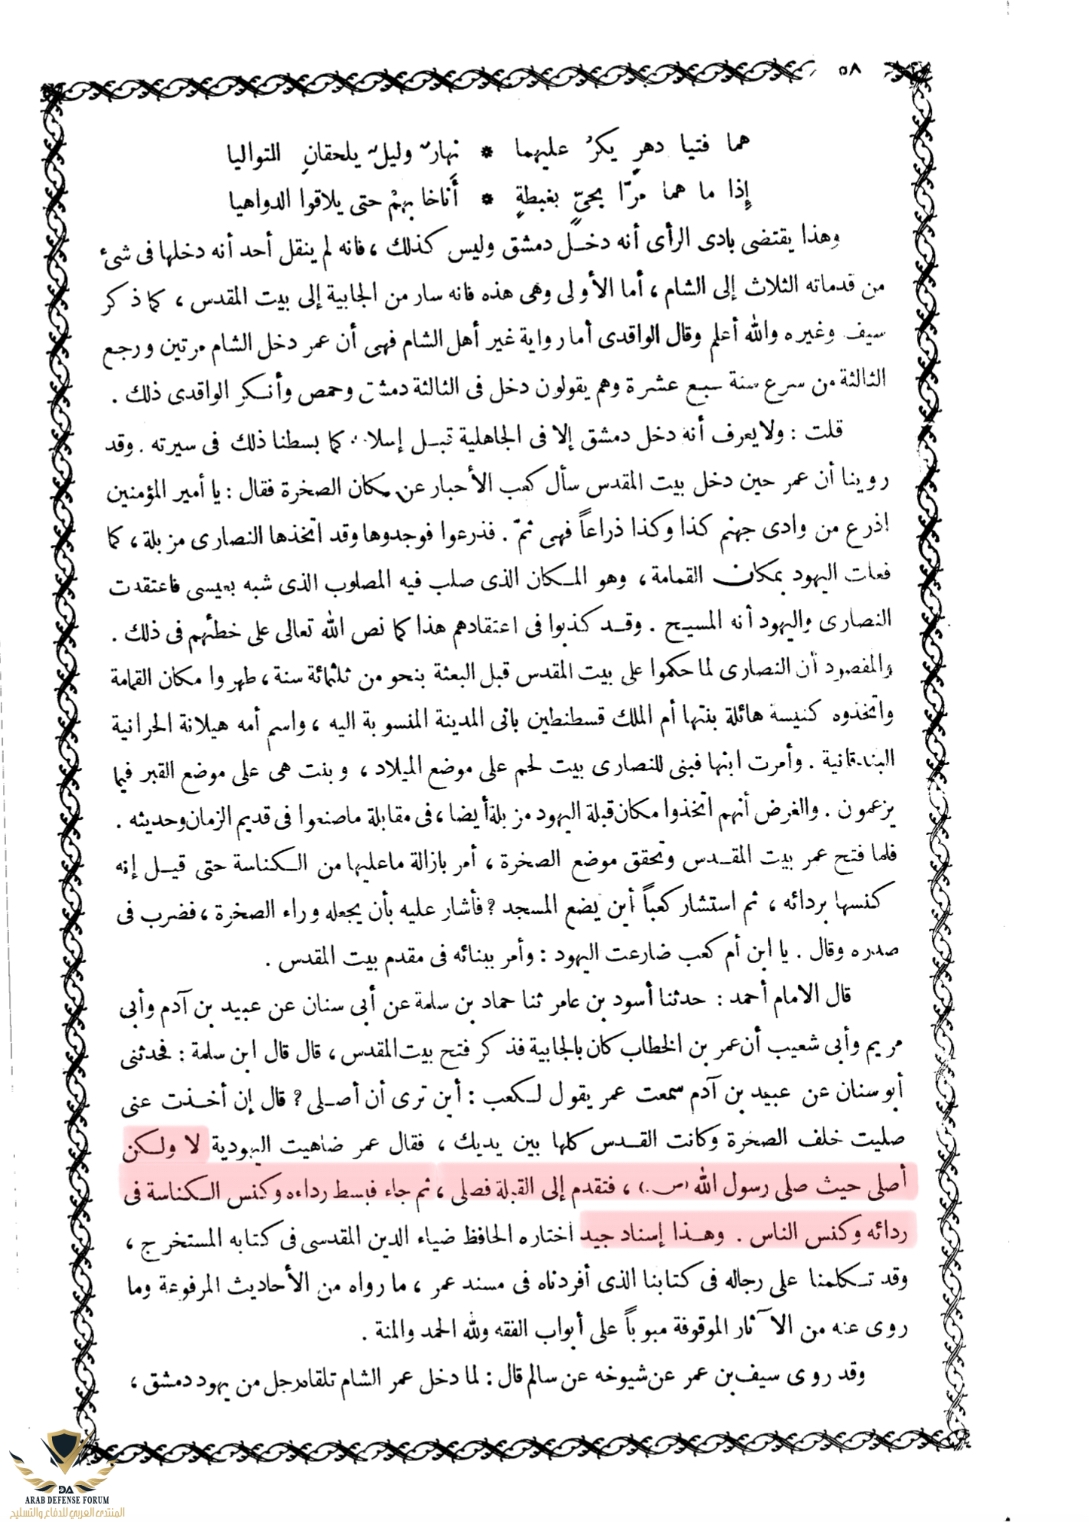 ٥٨
هما فتيا دهرٍ يكرُ عليهما * نهارٌ وليلٌ يلحقانِ التواليا
إِذا ما هما مَرّا بحيٍّ بغبطةٍ * أَناخا بهمْ حتى يلاقوا الدواهيا
وهذا يقتضى بادى الرأى أنه دخـل دمشق وليس كذلك ، فانه لم ينقل أحد أنه دخلها فى شئ
من قدماته الثلاث إلى الشام ، أما الأولى وهى هذه فانه سار من الجابية إلى بيت المقدس ، كما ذكر
سيف وغيره والله أعلم وقال الواقدى أما رواية غير أهل الشام فهى أن عمر دخل الشام مرتين ورجع
الثالثة من سرع سنة سبع عشرة وهم يقولون دخل فى الثالثة دمشق وحمص وأنـكر الواقدى ذلك .
قلت : ولا يعرف أنه دخل دمشق إلا فى الجاهلية قبـل إسلامه كما بسطنا ذلك فى سيرته . وقد
روينا أن عمر حين دخل بيت المقدس سأل كعب الأحبار عن مكان الصخرة فقال : يا أمير المؤمنين
اذرع من وادى جهنم كذا وكذا ذراعاً فهى ثمّ . فذرعوا فوجدوها وقد اتخذها النصارى مزبلة ، كما
فعلت اليهود بمكان القمامة ، وهو المـكان الذى صلب فيه المصلوب الذى شبه بعيسى فاعتقدت
النصارى واليهود أنه المسيح . وقـد كذبوا فى اعتقادهم هذا كما نص الله تعالى على خطئهم فى ذلك .
والمقصود أن النصارى لما حكموا على بيت المقدس قبل البعثة بنحو من ثلثمائة سنة ، طهروا مكان القمامة
واتخذوه كنيسة هائلة بنتها أم الملك قسطنطين بانى المدينة المنسوبة اليه ، واسم أمه هيلانة الحرانية
البندقانية . وأمرت ابنها فبنى للنصارى بيت لحم على موضع الميلاد ، وبنت هى على موضع القبر فيما
يزعمون . والغرض أنهم اتخذوا مكان قبلة اليهود مزبلة أيضا ، فى مقابلة ماصنعوا فى قديم الزمان وحديثه .
فلما فتح عمر بيت المقـدس وتحقق موضع الصخرة ، أمر بازالة ماعليها من الـكناسة حتى قيـل إنه
كنسها بردائه ، ثم استشار كعباً أين يضع المسجد ؟ فأشار عليه بأن يجعله وراء الصخرة ، فضرب فى
صدره وقال . يا ابن أم كعب ضارعت اليهود : وأمر ببنائه فى مقدم بيت المقدس .
قال الامام أحمد : حدثنا أسود بن عامر ثنا حماد بن سلمة عن أبى سنان عن عبيد بن آدم وأبى
مريم وأبى شعيب أن عمر بن الخطاب كان بالجابية فذكر فتح بيت المقدس ، قال قال ابن سلمة : فحدثنى
أبو سنان عن عبيد بن آدم سمعت عمر يقول لـكعب : أين ترى أن أصـلى ؟ قال إن أخـذت عنى
صليت خلف الصخرة وكانت القـدس كلها بين يديك ، فقال عمر ضاهيت اليهودية لا ولـكن
أصلى حيث صلى رسول الله (ص) ، فتقدم إلى القبلة فصلى ، ثم جاء فبسط رداءه وكنس الـكناسة فى
ردائه وكنس الناس . وهـذا إسناد جيد اختاره الحافظ ضياء الدين المقدسى فى كتابه المستخرج ،
وقد تـكلمنا على رجاله فى كتابنا الذى أفردناه فى مسند عمر ، ما رواه من الأحاديث المرفوعة وما
روى عنه من الآثار الموقوفة مبوباً على أبواب الفقه ولله الحمد والمنة .
وقد روى سيف بن عمر عن شيوخه عن سالم قال : لما دخل عمر الشام تلقاه رجل من يهود دمشق ،
DA
ARAB DEFENSE FORUM
المنتدى العربي للدفاع والتسليح